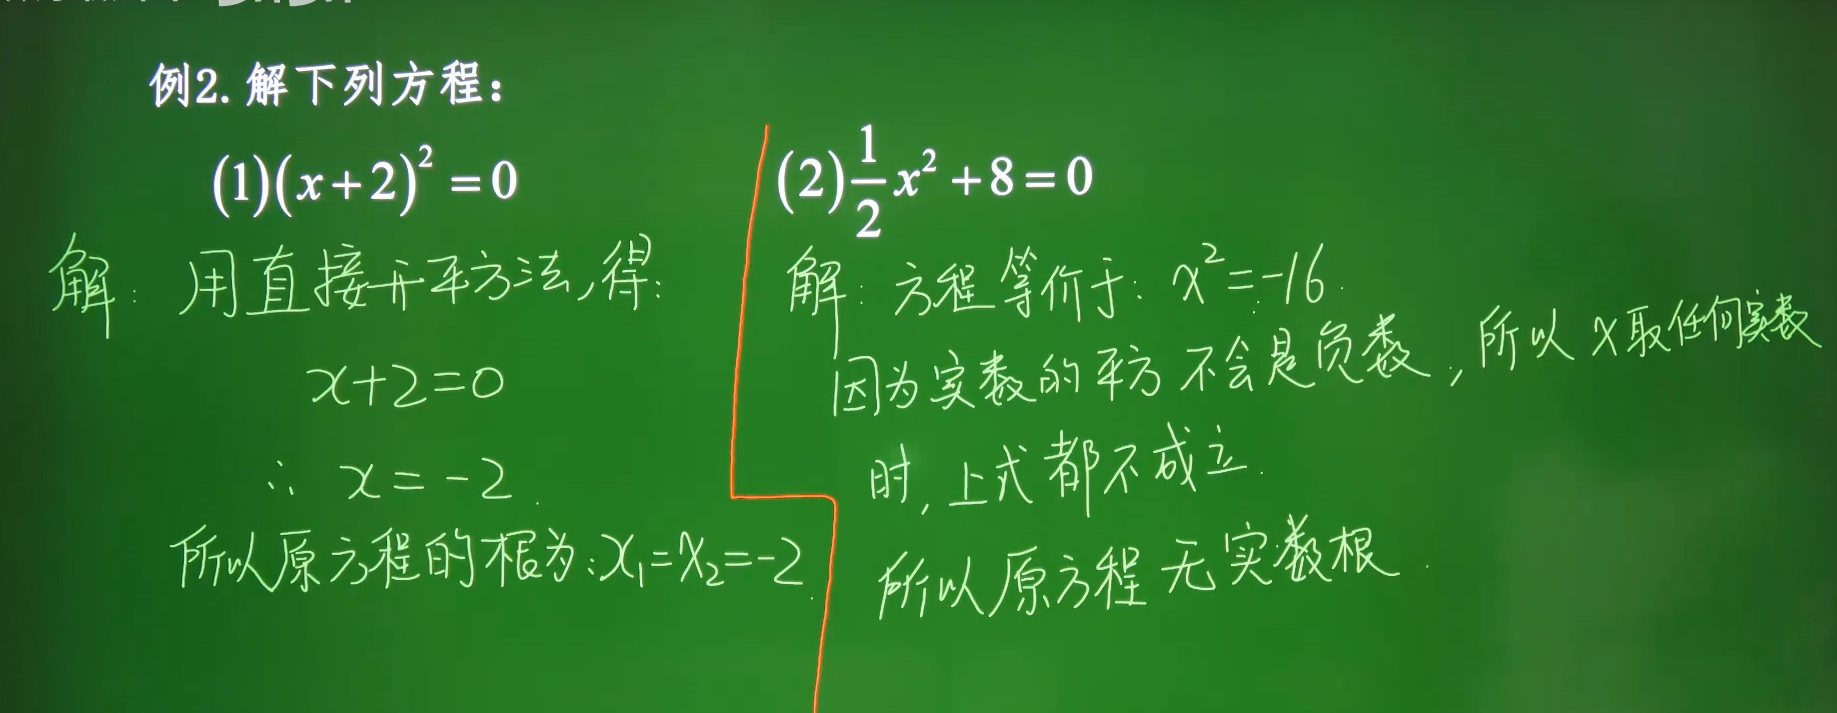 例2. 解下列方程：
(1)(x+2)²=0
解：用直接开平方法,得：
x+2=0
∴ x=-2.
所以原方程的根为：x₁=x₂=-2.
(2)1/2x²+8=0
解：方程等价于：x²=-16.
因为实数的平方不会是负数，所以 x取任何实数
时,上式都不成立.
所以原方程无实数根.